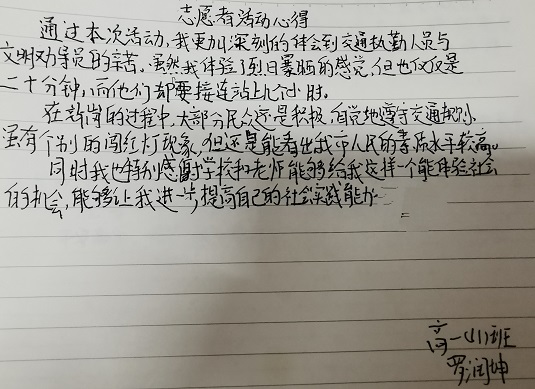 志愿者活动心得
通过本次活动,我更加深刻的体会到交通执勤人员与
文明劝导员的辛苦。虽然我体验了烈日暴晒的感觉,但也仅仅是
二十分钟,而他们却要接连站上几个小时。
在站岗的过程中,大部分民众还是积极、自觉地遵守交通规则。
虽有个别的闯红灯现象,但还是能看出我市人民的素质水平较高。
同时我也特别感谢学校和老师能够给我这样一个能体验社会
的机会,能够让我进一步提高自己的社会实践能力
高一(11)班
罗润坤